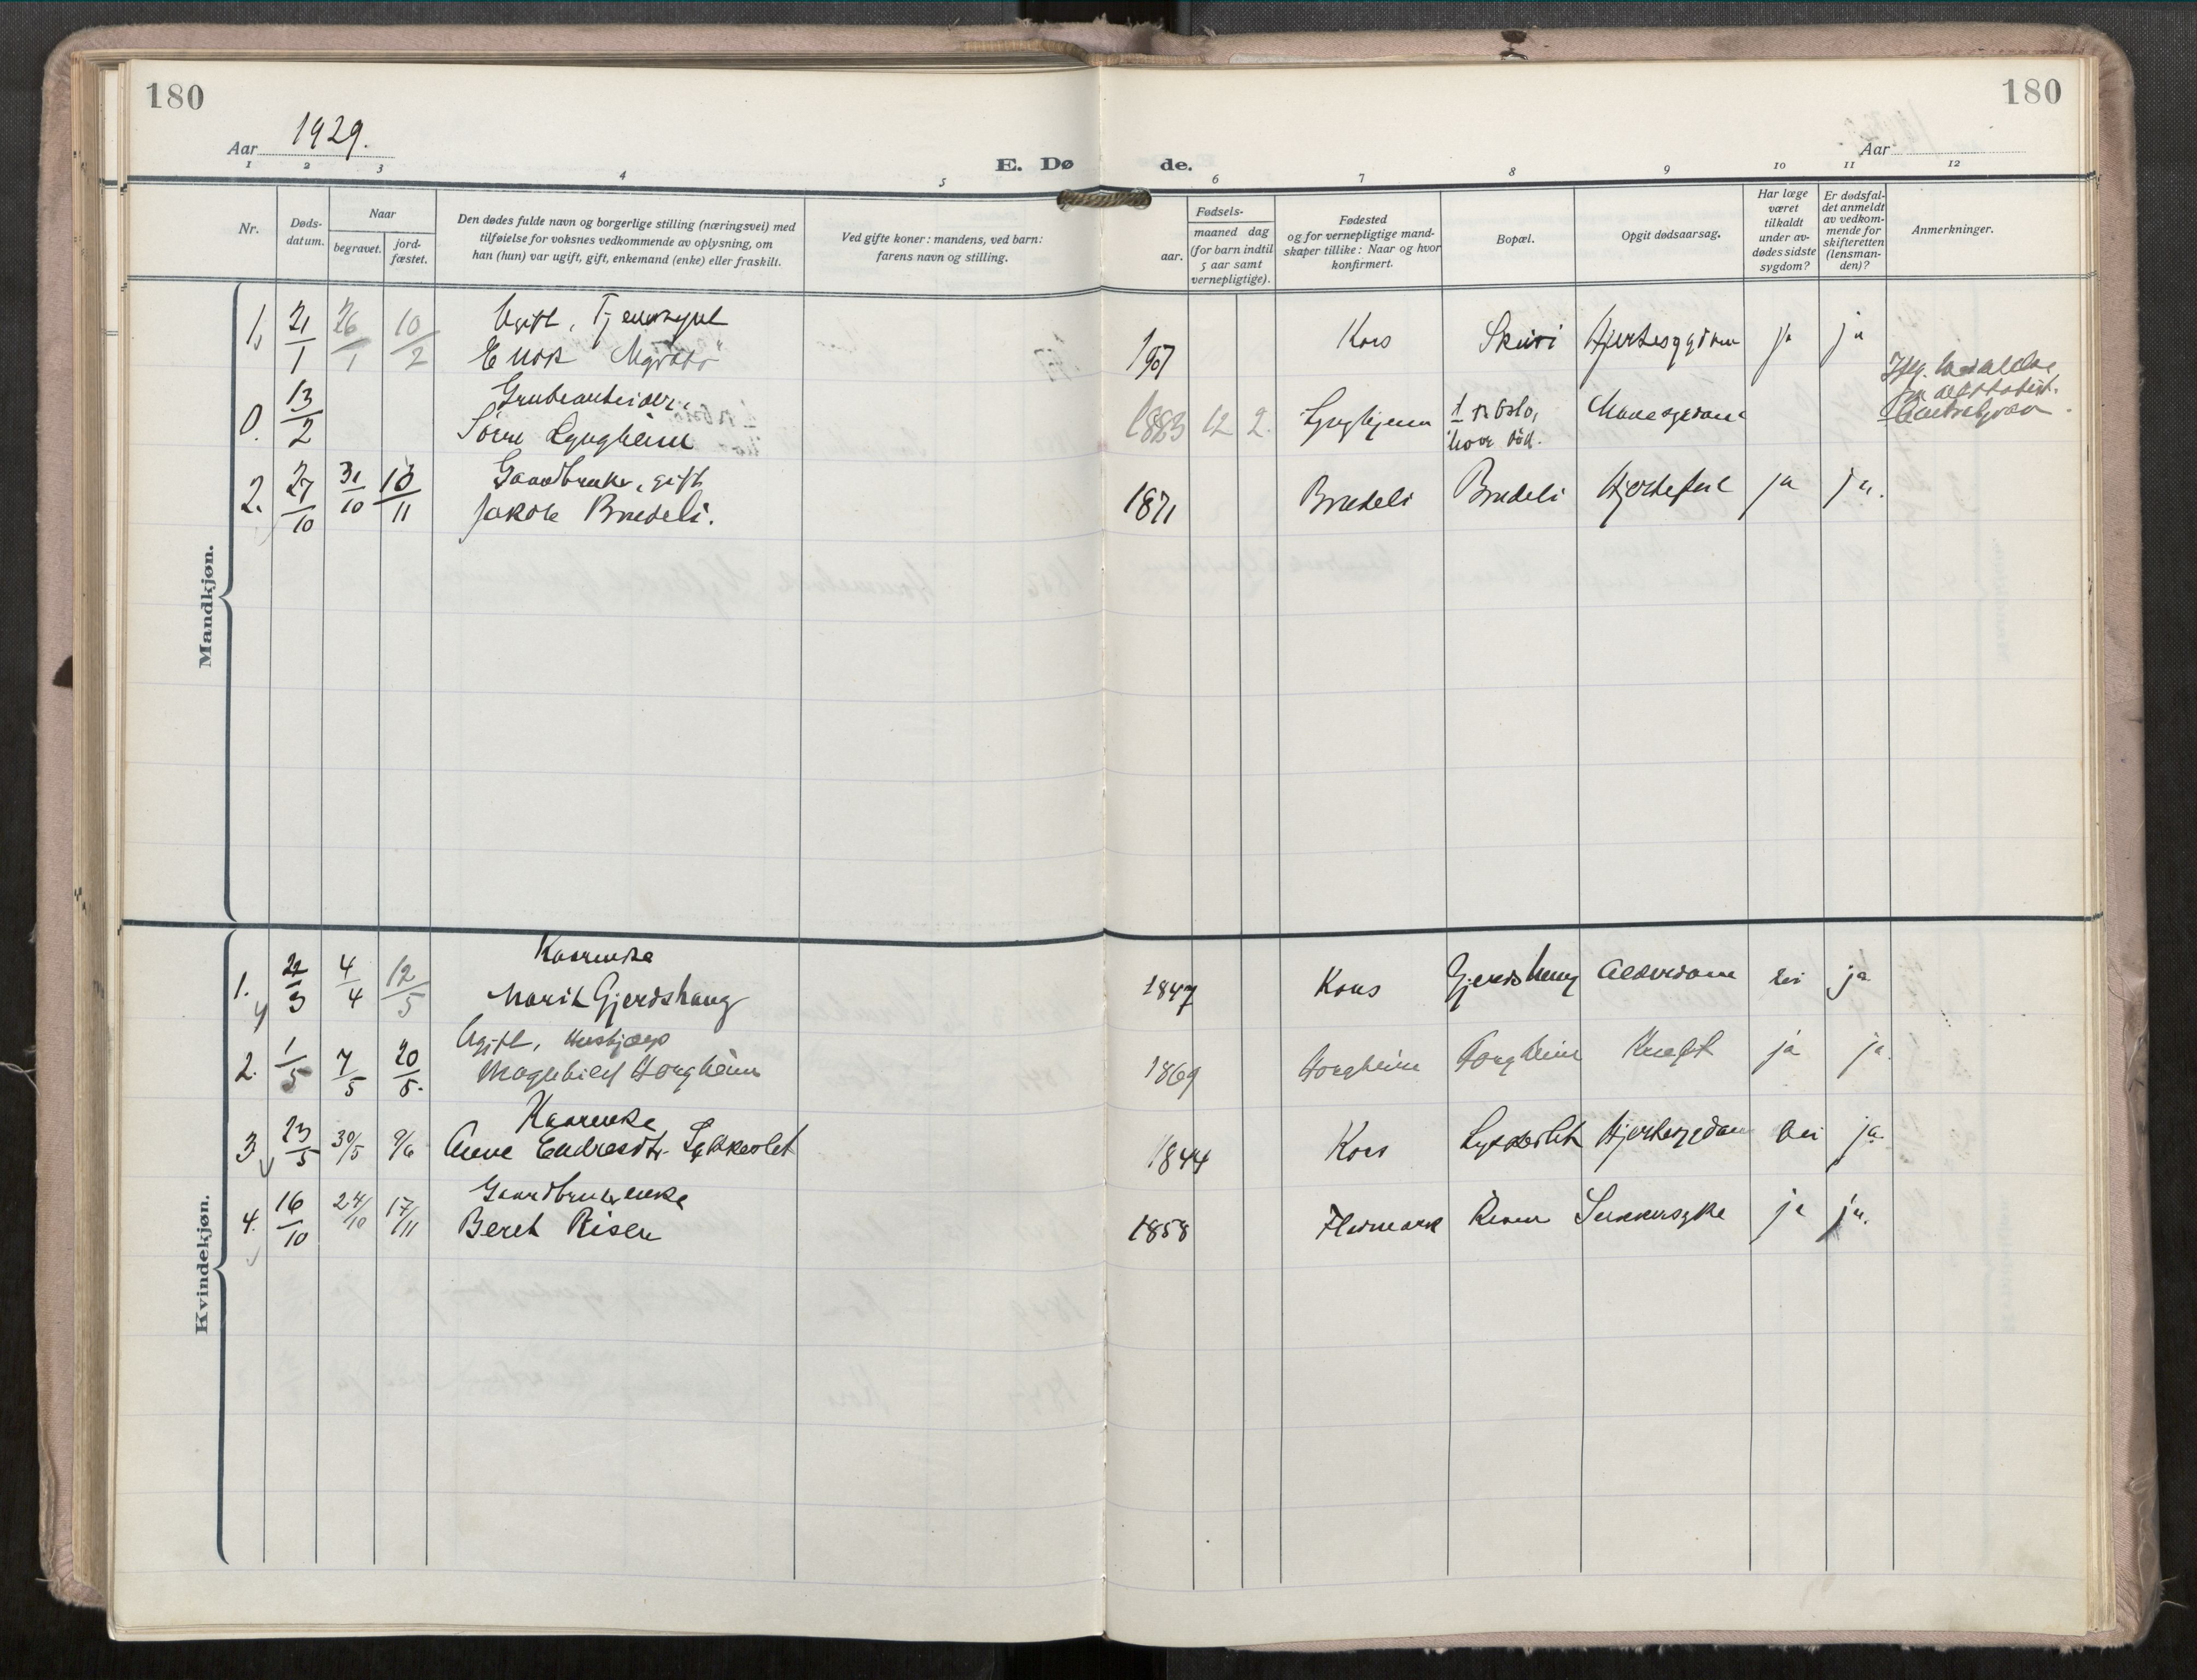 180
180
Aar 1929.
E. Dø de.
Aar
1 2 3 4 5 6 7 8 9 10 11 12
Nr.
Døds-
datum.
Naar
begravet.
jord-
fæstet.
Den dødes fulde navn og borgerlige stilling (næringsvei) med
tilføielse for voksnes vedkommende av oplysning, om
han (hun) var ugift, gift, enkemand (enke) eller fraskilt.
Ved gifte koner: mandens, ved barn:
farens navn og stilling.
Fødsels-
aar.
maaned dag
(for barn indtil
5 aar samt
vernepligtige).
Fødested
og for vernepligtige mand-
skaper tillike: Naar og hvor
konfirmert.
Bopæl.
Opgit dødsaarsag.
Har læge
været
tilkaldt
under av-
dødes sidste
sygdom?
Er dødsfal-
det anmeldt
av vedkom-
mende for
skifteretten
(lensman-
den)?
Anmerkninger.
Mandkjøn.
Ugift,
1. 21/1 26/1 10/2 Enok 1907 Kors Skiri Hjertesygdom ja ja
Grubearbeider,
0. 13/2 Lyngheim 1883 12 2. Lyngheim i Oslo, Mavesygdom
hvor död.
Gaardbruker, gift
2. 27/10 31/10 10/11 Jakob Bredeli. 1871 Bredeli Bredeli Hjertefeil ja ja.
Kvindekjøn.
Kaarenke
1. 22/3 4/4 12/5 Marit Gjerdshaug 1847 Kors Gjerdshaug Alderdom nei ja
Ugift, Hushjælp
2. 1/5 7/5 20/5. Magnhild Horgheim 1869 Horgheim Horgheim Kræft ja ja.
Kaarenke
3 23/5 30/5 9/6 Anne Endresdtr. Lykkeslet 1844 Kors Lykkeslet Hjertesygdom nei ja.
Gaardbruk. enke
4. 16/10 24/10 17/11 Beret Risen 1858 Flatmark Risen Sukkersyke ja ja.